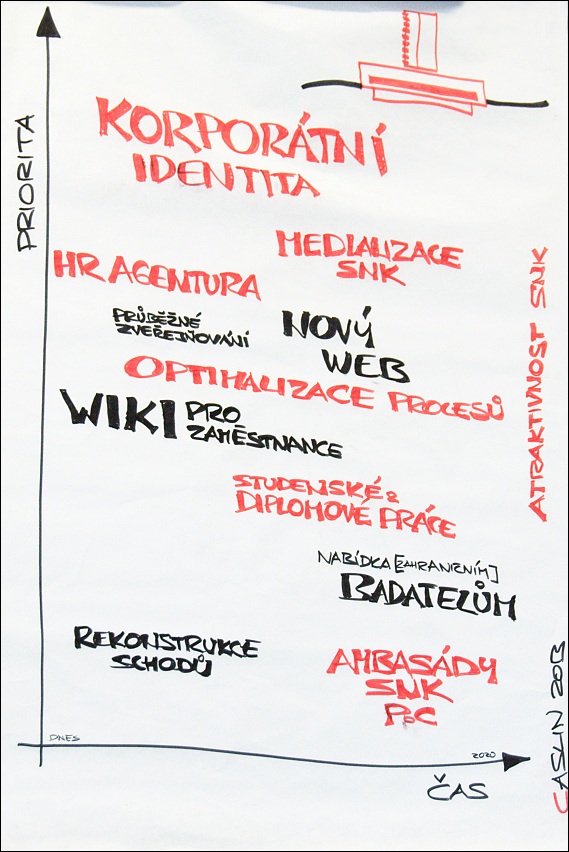 PRIORITA
KORPORÁTNÍ
IDENTITA
MEDIALIZACE
SNK
HR AGENTURA
PRŮBĚŽNÉ
ZVEŘEJŇOVÁNÍ
NOVÝ
WEB
OPTIMALIZACE PROCESŮ
WIKI PRO
ZAMĚSTNANCE
STUDENSKÉ &
DIPLOMOVÉ PRÁCE
NABÍDKA [ZAHRANIČNÍM]
BADATELŮM
REKONSTRUKCE
SCHODŮ
AMBASÁDY
SNK
PoC
DNES
2020
ČAS
ATRAKTIVNOST SNK
CASLIN 2013